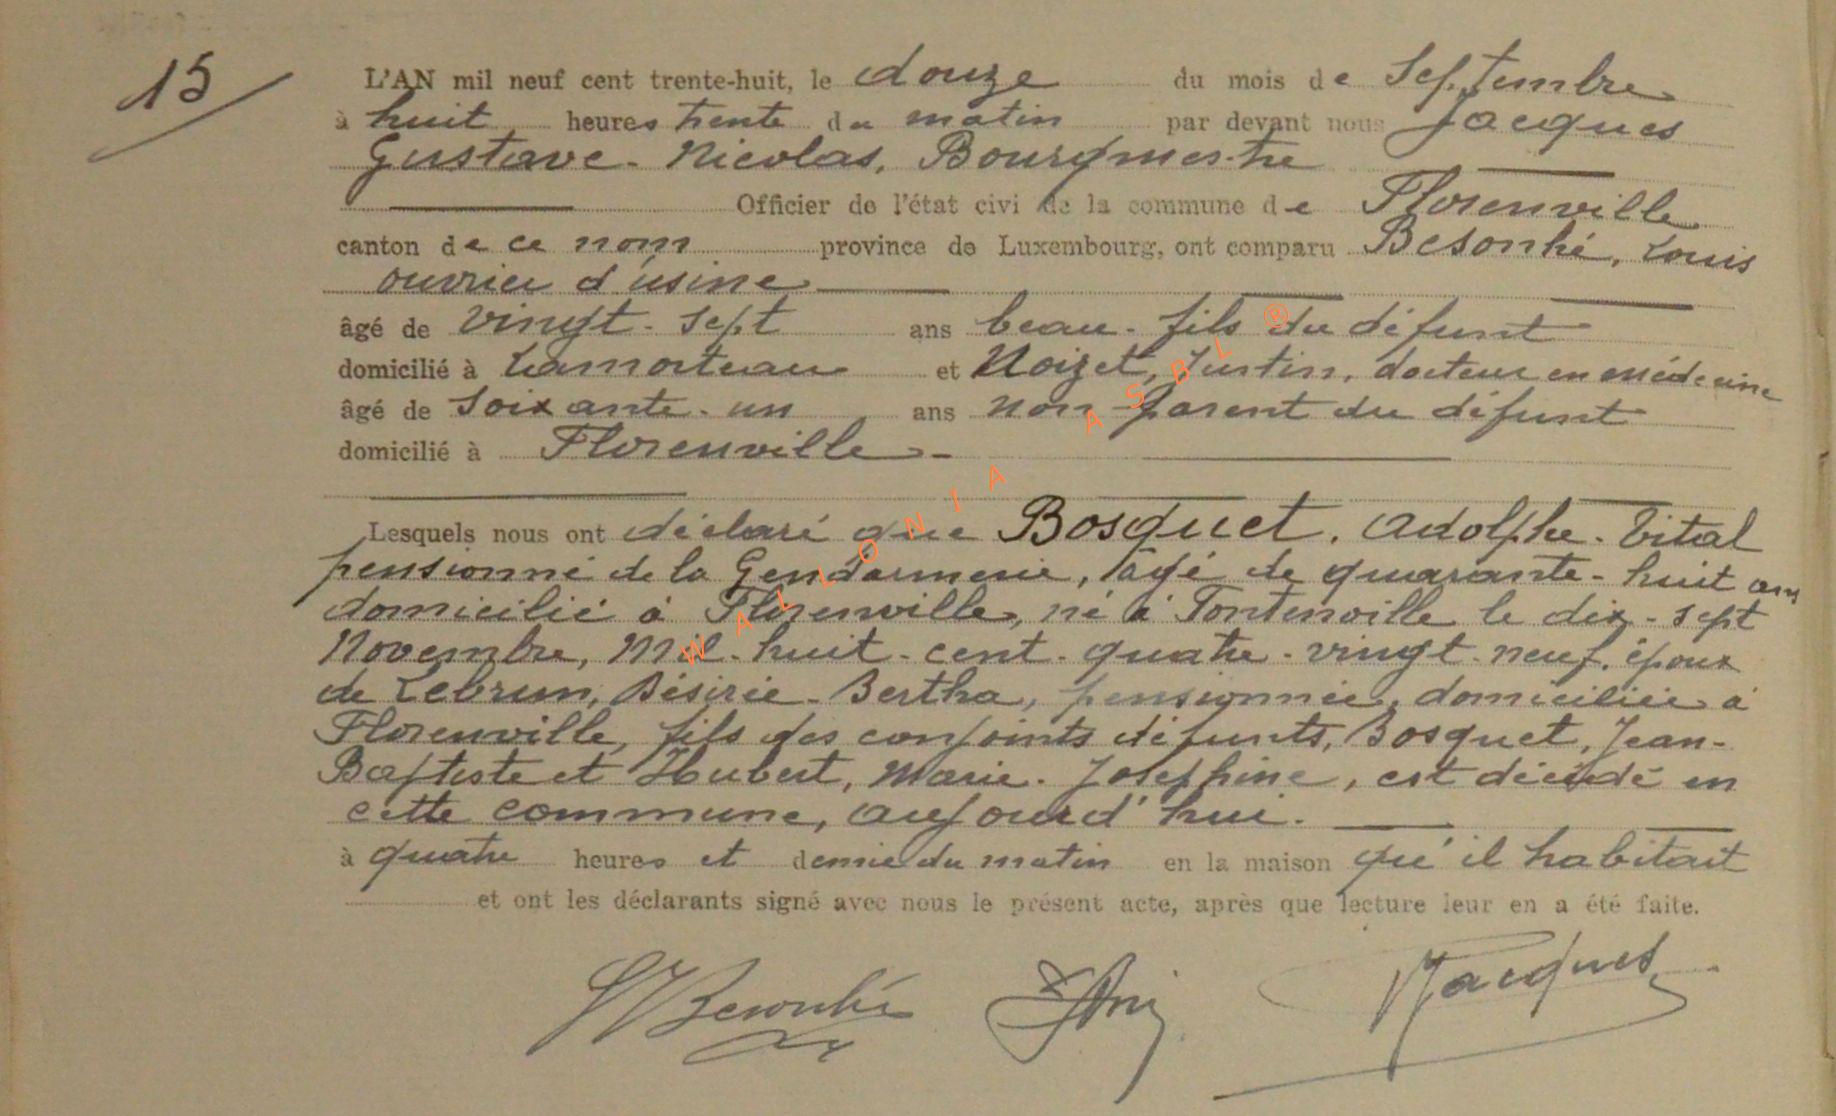 15
L'AN mil neuf cent trente-huit, le douze du mois de Septembre
à huit heures trente du matin par devant nous Jacques
Gustave-Nicolas, Bourgmestre
Officier de l'état civi de la commune de Florenville
canton de ce nom province de Luxembourg, ont comparu Besonhé, Louis
ouvrier d'usine
âgé de vingt-sept ans beau-fils du défunt
domicilié à Lamorteau et Noizet, Justin, docteur en médecine
âgé de soixante-un ans non parent du défunt
domicilié à Florenville-
Lesquels nous ont déclaré que Bosquet, Adolphe-Vital
pensionné de la Gendarmerie, âgé de quarante-huit ans
domicilié à Florenville, né à Fontenoille le dix-sept
Novembre, Mil-huit-cent-quatre-vingt-neuf, époux
de Lebrun, Désirée-Bertha, pensionnée, domiciliée à
Florenville, fils des conjoints défunts, Bosquet, Jean-
Baptiste et Hubert, Marie-Joséphine, est décédé en
cette commune, aujourd'hui.
à quatre heures et demie du matin en la maison qu'il habitait
et ont les déclarants signé avec nous le présent acte, après que lecture leur en a été faite.
Besonhé Jacques
WALLONIA ASBL ®